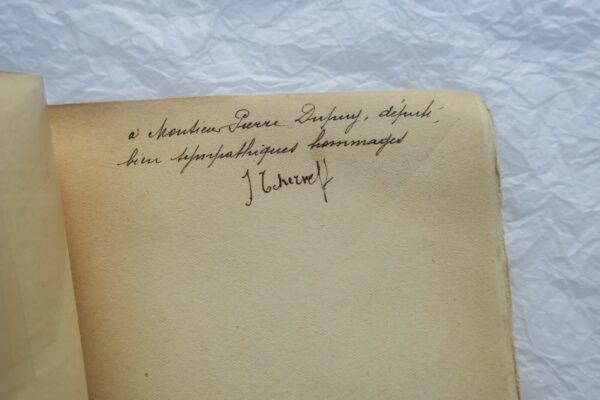 à Monsieur Pierre Dupuy, député,
bien sympathiques hommages